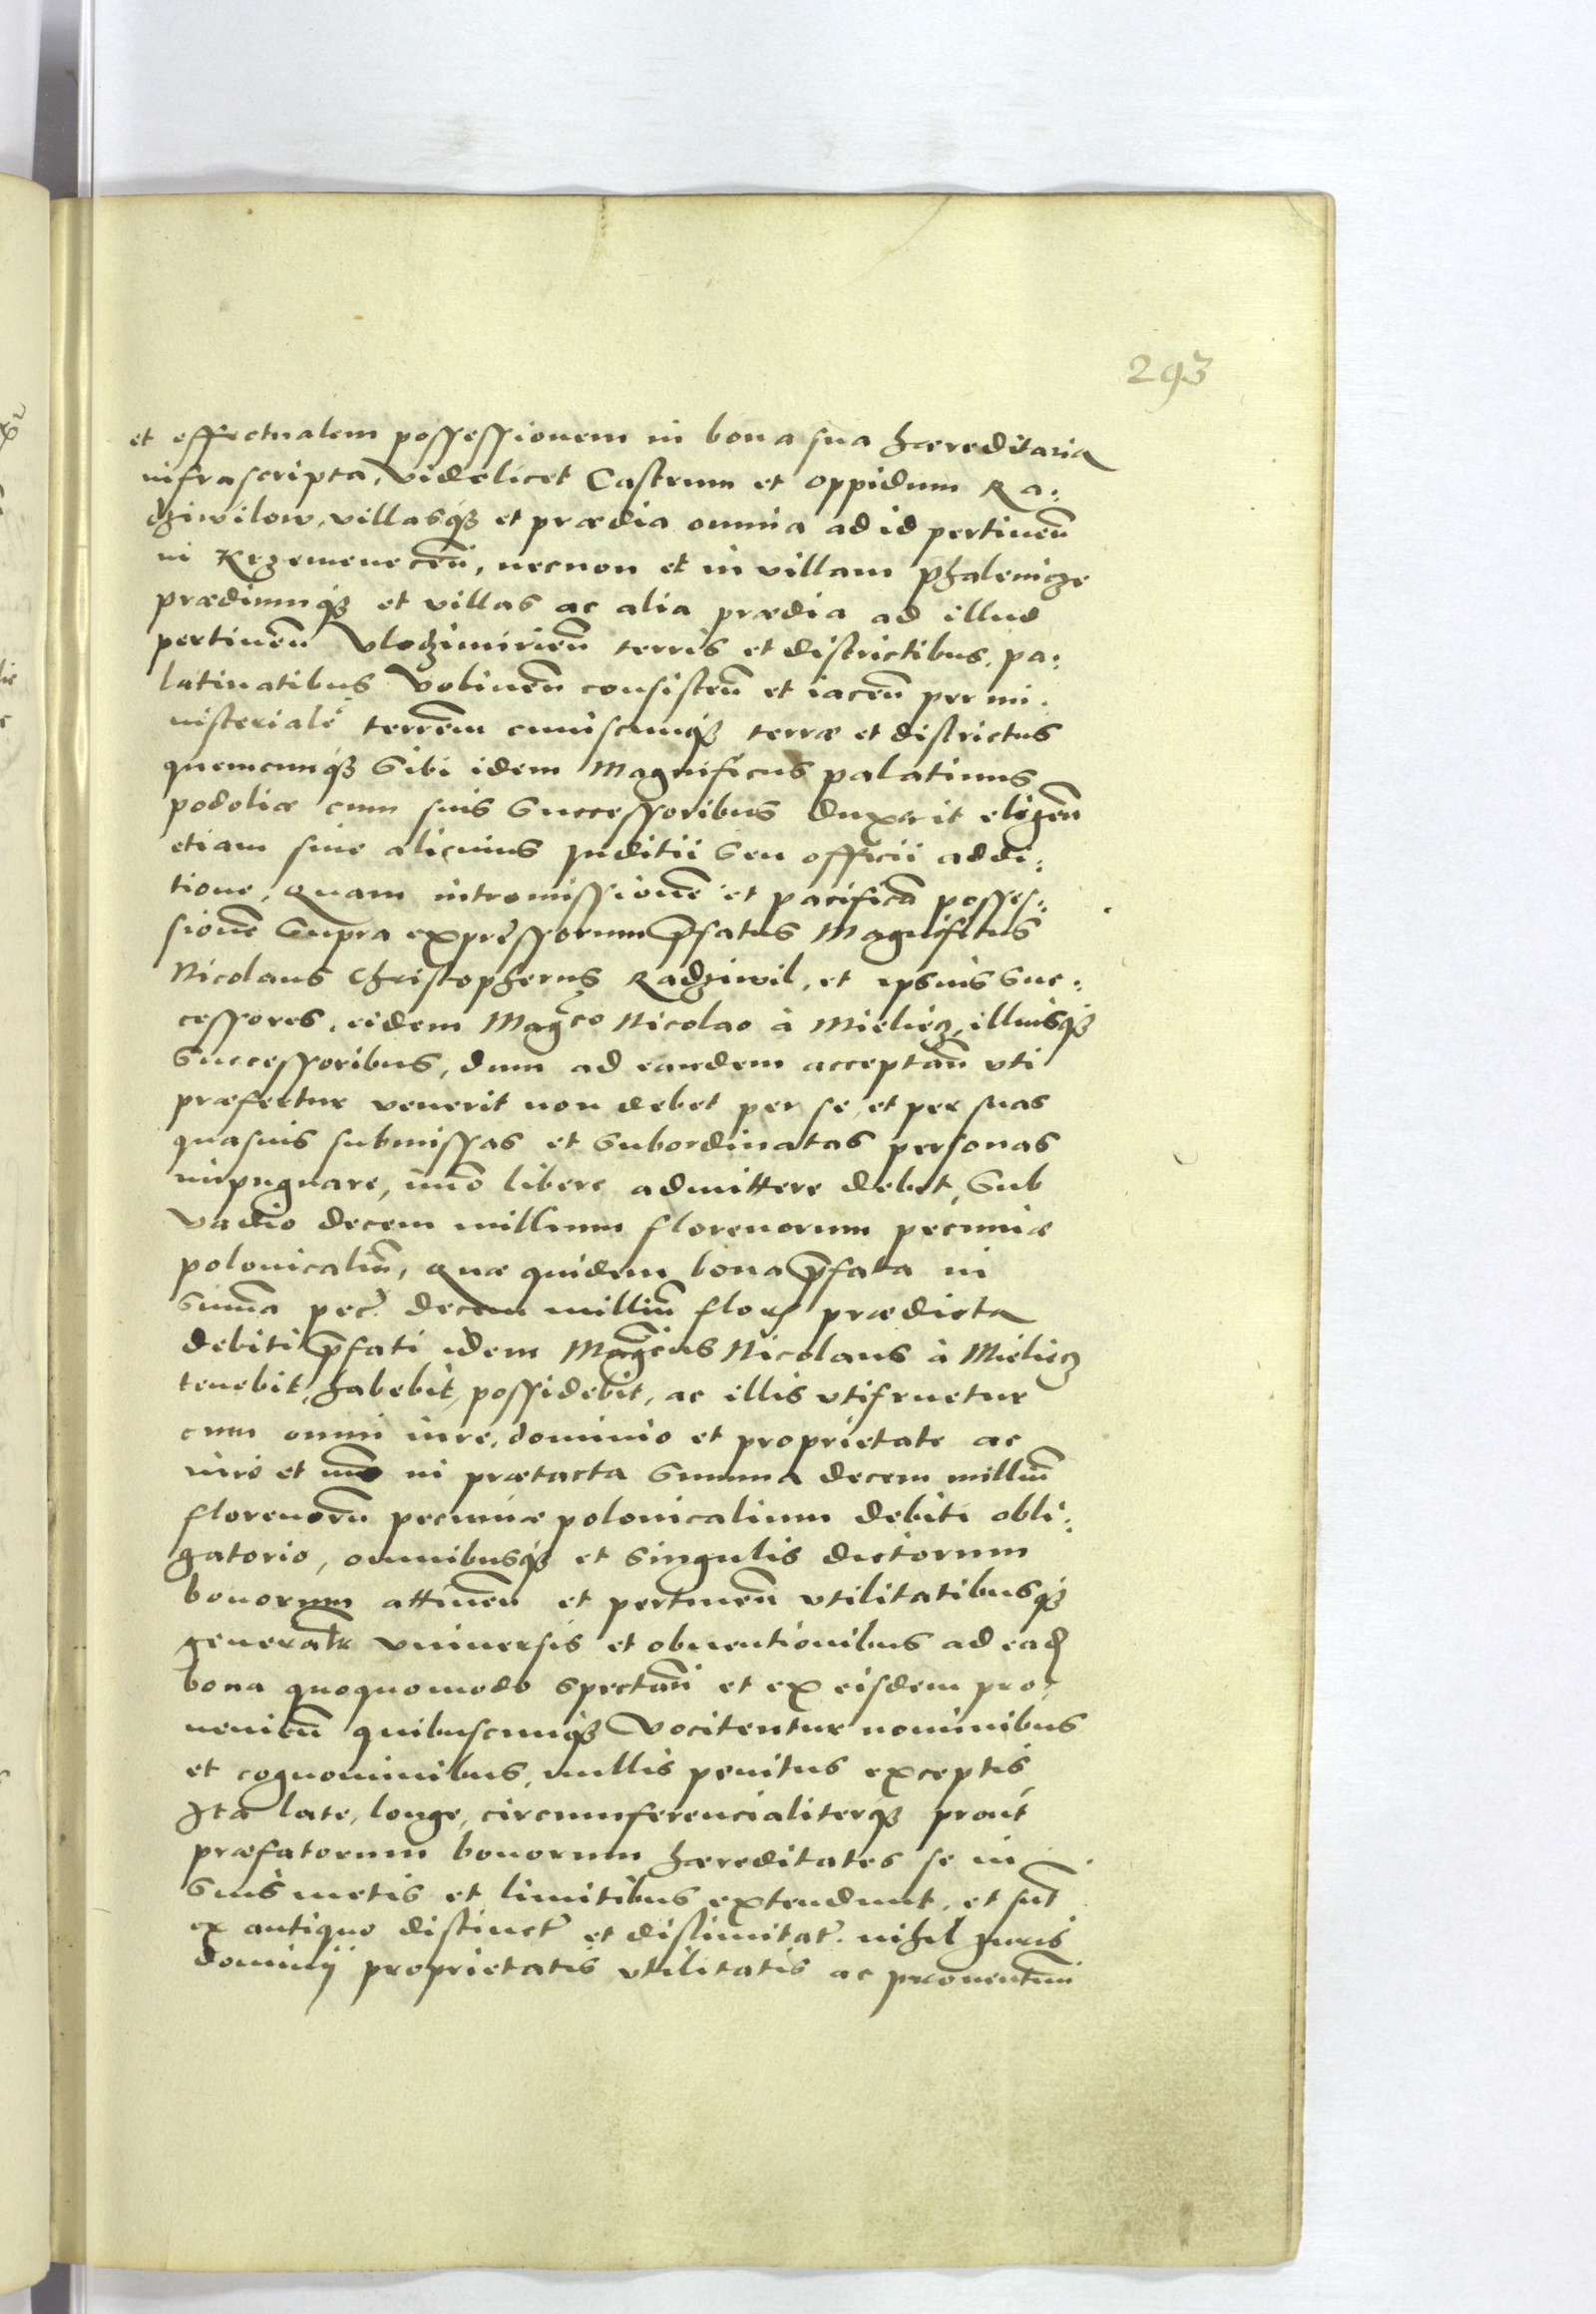 293
et effectualem possessionem in bona sua haereditaria
infrascripta, videlicet Castrum et oppidum Ra:
dziwilow, villasq3 et praedia omnia ad id pertinen̄
in Krzemenecen̄, necnon et in villam
praediumq3 et villas ac alia praedia ad illud
pertinen̄ Vlodzimirien̄ terris et districtibus, pa:
latinatibus Volinen̄ consisten̄ et iacen̄ per mi:
nisterialē terrēm cuiuscunq3 terrae et districtus
quemcunq3 sibi idem Magnificus palatinus
podoliae cum suis successoribus duxerit eligen̄
etiam sine alicuius Juditii seu officii addi:
tione, quam intromissionē et pacificā posses:
sionē supra expressorum p̄fatus Magnificus
Nicolaus Christopherus Radziwil, et ipsius suc:
cessores, eidem Mag̃co Nicolao à Mieliecz, illiusq3
successoribus, dum ad eandem acceptan̄ vti
praefertur venerit non debet per se et per suas
quasuis submissas et subordinatas personas
impugnare, imō libere admittere debet, sub
vadio decem millium florenorum pecuniae
polonicaliū, quae quidem bona p̄fata in
sum̄a pec̃ decem milliū flor̃ praedicta
debiti p̄fati idem Mag̃cus Nicolaus à Mieliecz
tenebit, habebit, possidebit, ac illis vtifruetur
cum omni iure, dominio et proprietate ac
et in praetacta summa decem milliū
florenorū pecuniae polonicalium debiti obli:
gatorio, omnibusq3 et singulis dictorum
bonorum attinen̄ et pertinen̄ vtilitatibusq3
generalr̄ vniuersis et obuentionibus ad ead̄
bona quoquomodo spectan̄ et ex eisdem pro:
uenien̄ quibuscunq3 vocitentur nominibus
et cognominibus, nullis penitus exceptis,
Ita late, longe, circumferencialiterq3 prout
praefatorum bonorum haereditates se in
suis metis et limitibus extendunt, et sūt
ex antiquo distinct̃ et dislimitat̃. nihil Juris
dominij proprietatis vtilitatis ac prouentum